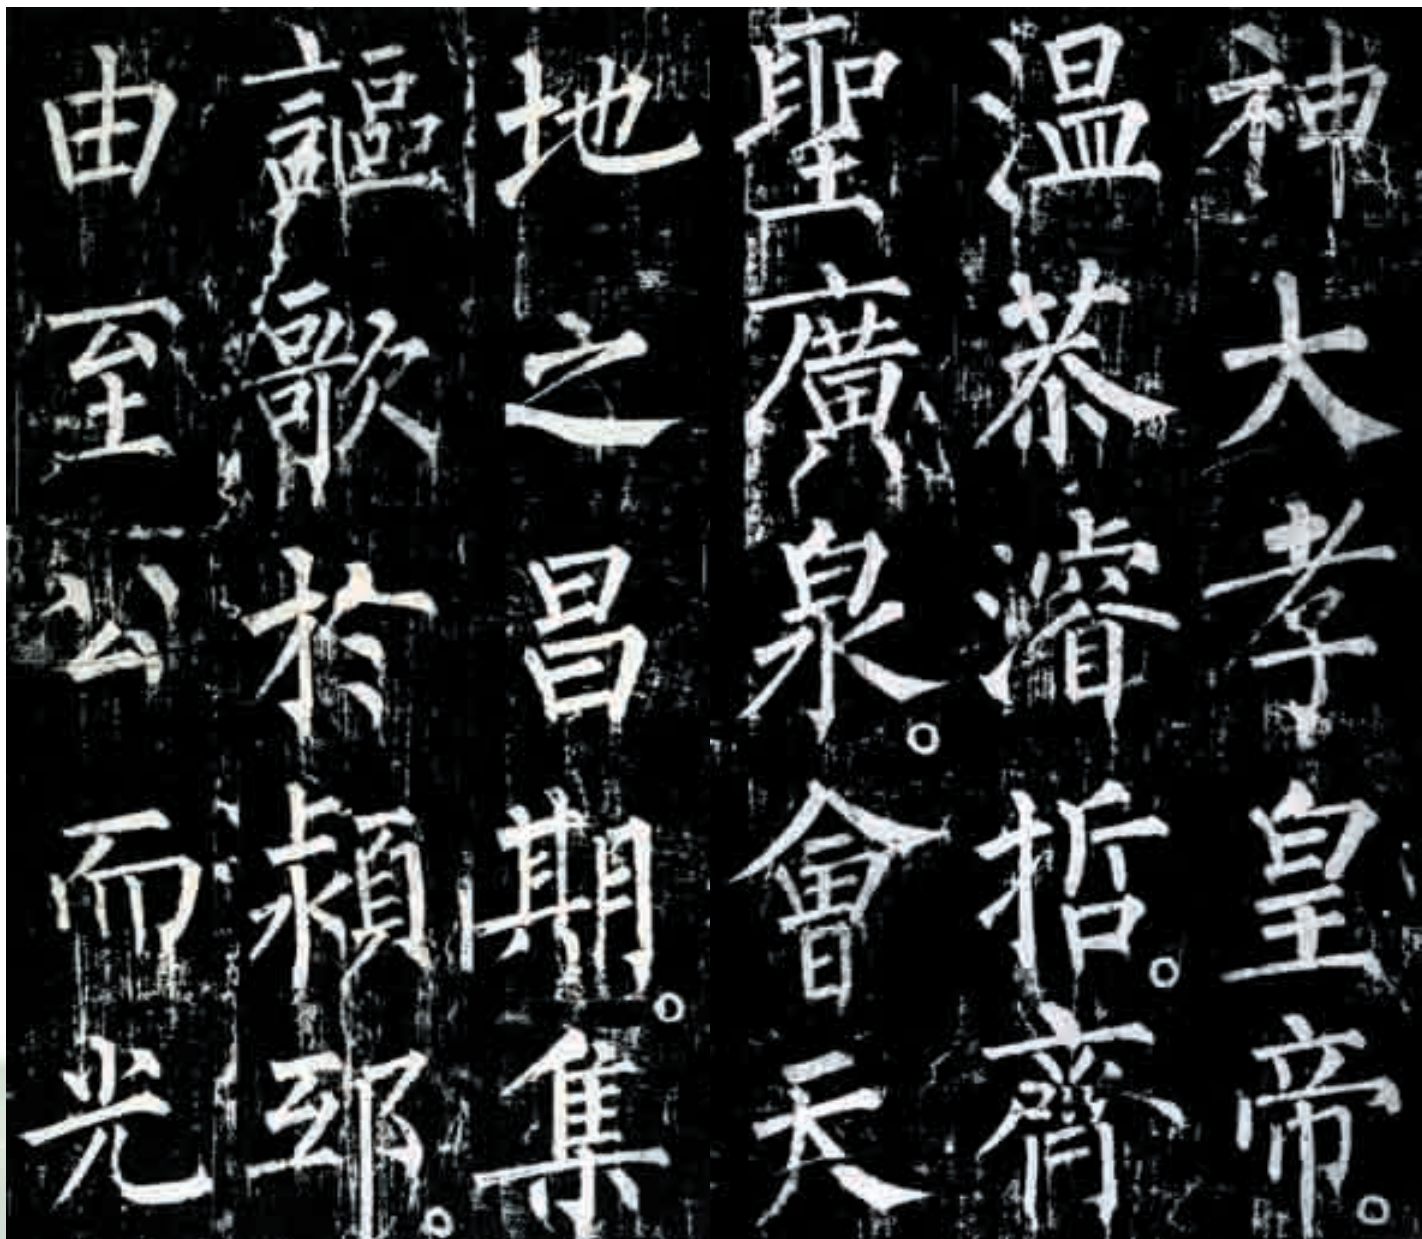 神大孝皇帝。
溫恭濬哲。齊
聖廣泉。會天
地之昌期。集
謳歌於潁邸。
由至公而光